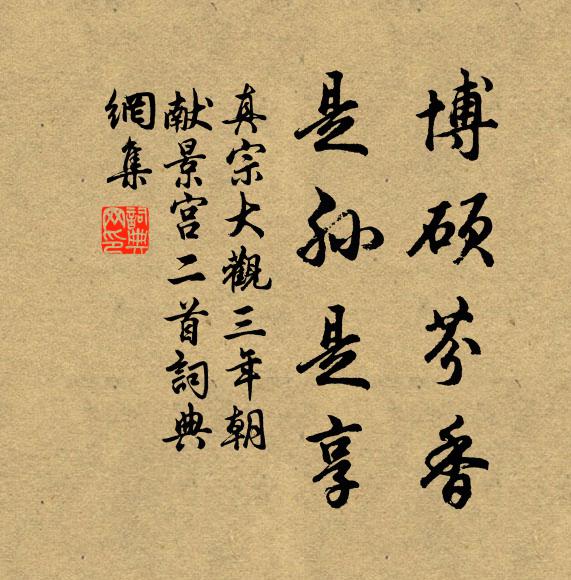 博硕芬香
是孙是享
真宗大觀三年朝
献景宫二首詞典
網集
詞典
网印